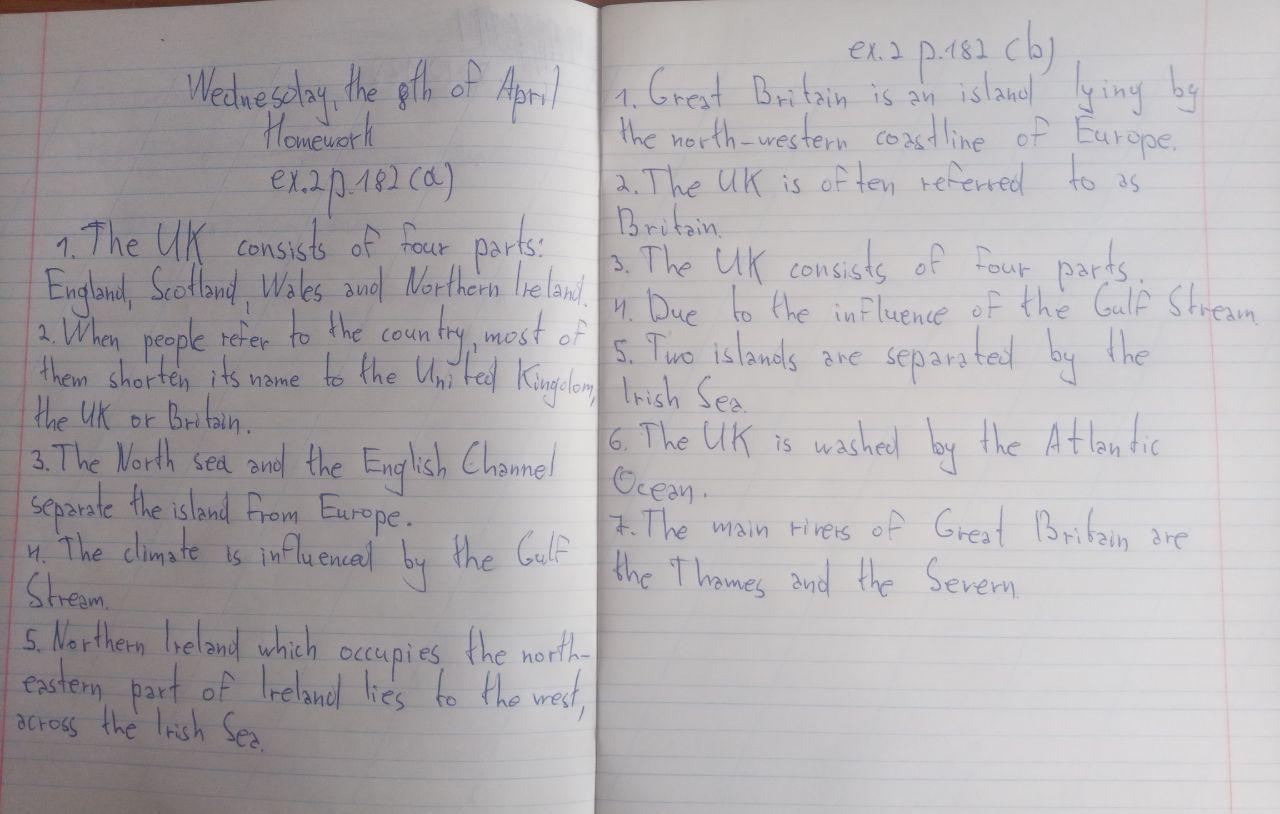 Wednesday, the 8th of April
Homework
ex.2 p.182 (a)
1. The UK consists of four parts:
England, Scotland, Wales and Northern Ireland.
2. When people refer to the country, most of
them shorten its name to the United Kingdom,
the UK or Britain.
3. The North sea and the English Channel
separate the island from Europe.
4. The climate is influenced by the Gulf
Stream.
5. Northern Ireland which occupies the north-
eastern part of Ireland lies to the west,
across the Irish Sea.
ex.2 p.182 (b)
1. Great Britain is an island lying by
the north-western coastline of Europe.
2. The UK is often referred to as
Britain.
3. The UK consists of four parts.
4. Due to the influence of the Gulf Stream.
5. Two islands are separated by the
Irish Sea.
6. The UK is washed by the Atlantic
Ocean.
7. The main rivers of Great Britain are
the Thames and the Severn.